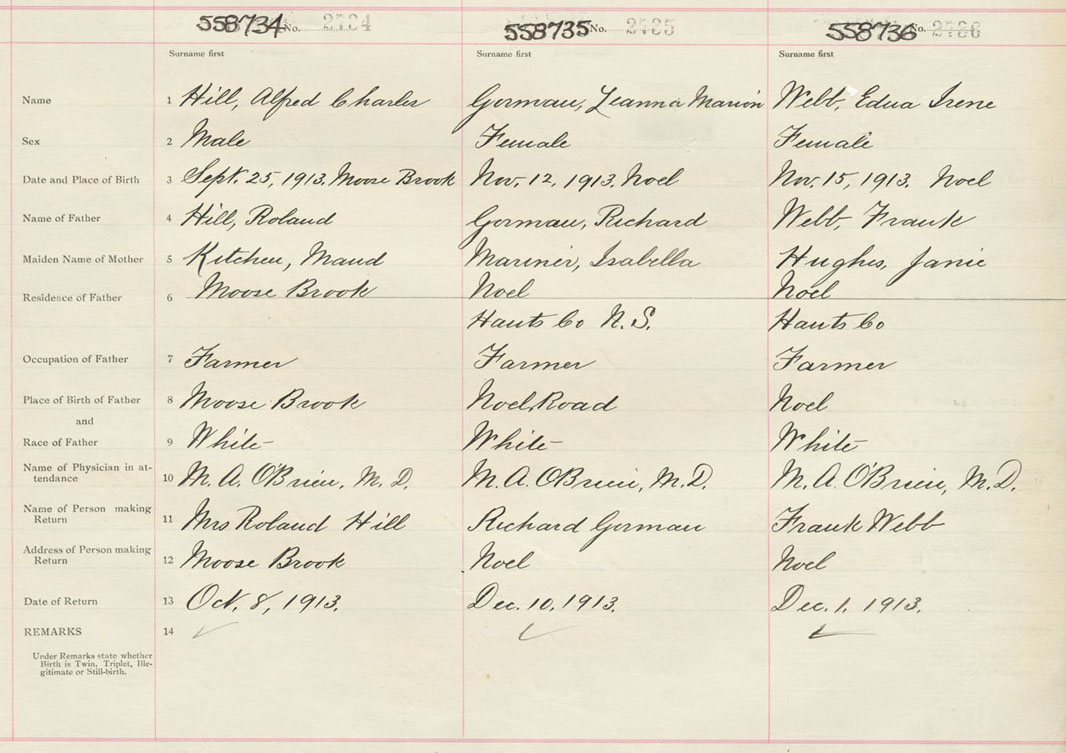 558734 No. 2734 558735 No. 2735 558736 No. 2736
Surname first Surname first Surname first
Name 1 Hill, Alfred Charles Gorman, Leanna Marion Webb, Edna Irene
Sex 2 Male Female Female
Date and Place of Birth 3 Sept. 25, 1913. Moose Brook Nov. 12, 1913. Noel Nov. 15, 1913. Noel
Name of Father 4 Hill, Roland Gorman, Richard Webb, Frank
Maiden Name of Mother 5 Kitchen, Maud Mariner, Isabella Hughes, Janie
Residence of Father 6 Moose Brook Noel Noel
Hants Co N.S. Hants Co
Occupation of Father 7 Farmer Farmer Farmer
Place of Birth of Father 8 Moose Brook Noel Road Noel
and
Race of Father 9 White White White
Name of Physician in at-
tendance 10 M. A. O'Brien, M. D. M. A. O'Brien, M. D. M. A. O'Brien, M. D.
Name of Person making
Return 11 Mrs Roland Hill Richard Gorman Frank Webb
Address of Person making
Return 12 Moose Brook Noel Noel
Date of Return 13 Oct. 8, 1913. Dec. 10. 1913. Dec. 1. 1913.
REMARKS 14
Under Remarks state whether
Birth is Twin, Triplet, Ille-
gitimate or Still-birth.